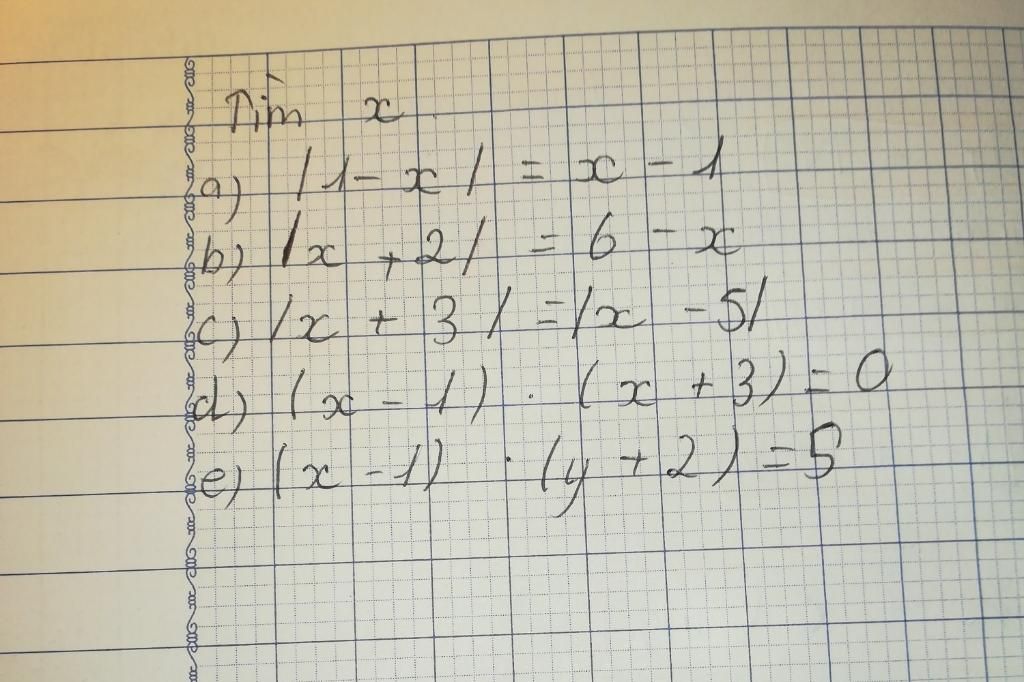 Tìm x
a) |1 - x| = x - 1
b) |x + 2| = 6 - x
c) |x + 3| = |x - 5|
d) (x - 1) . (x + 3) = 0
e) (x - 1) . (y + 2) = 5